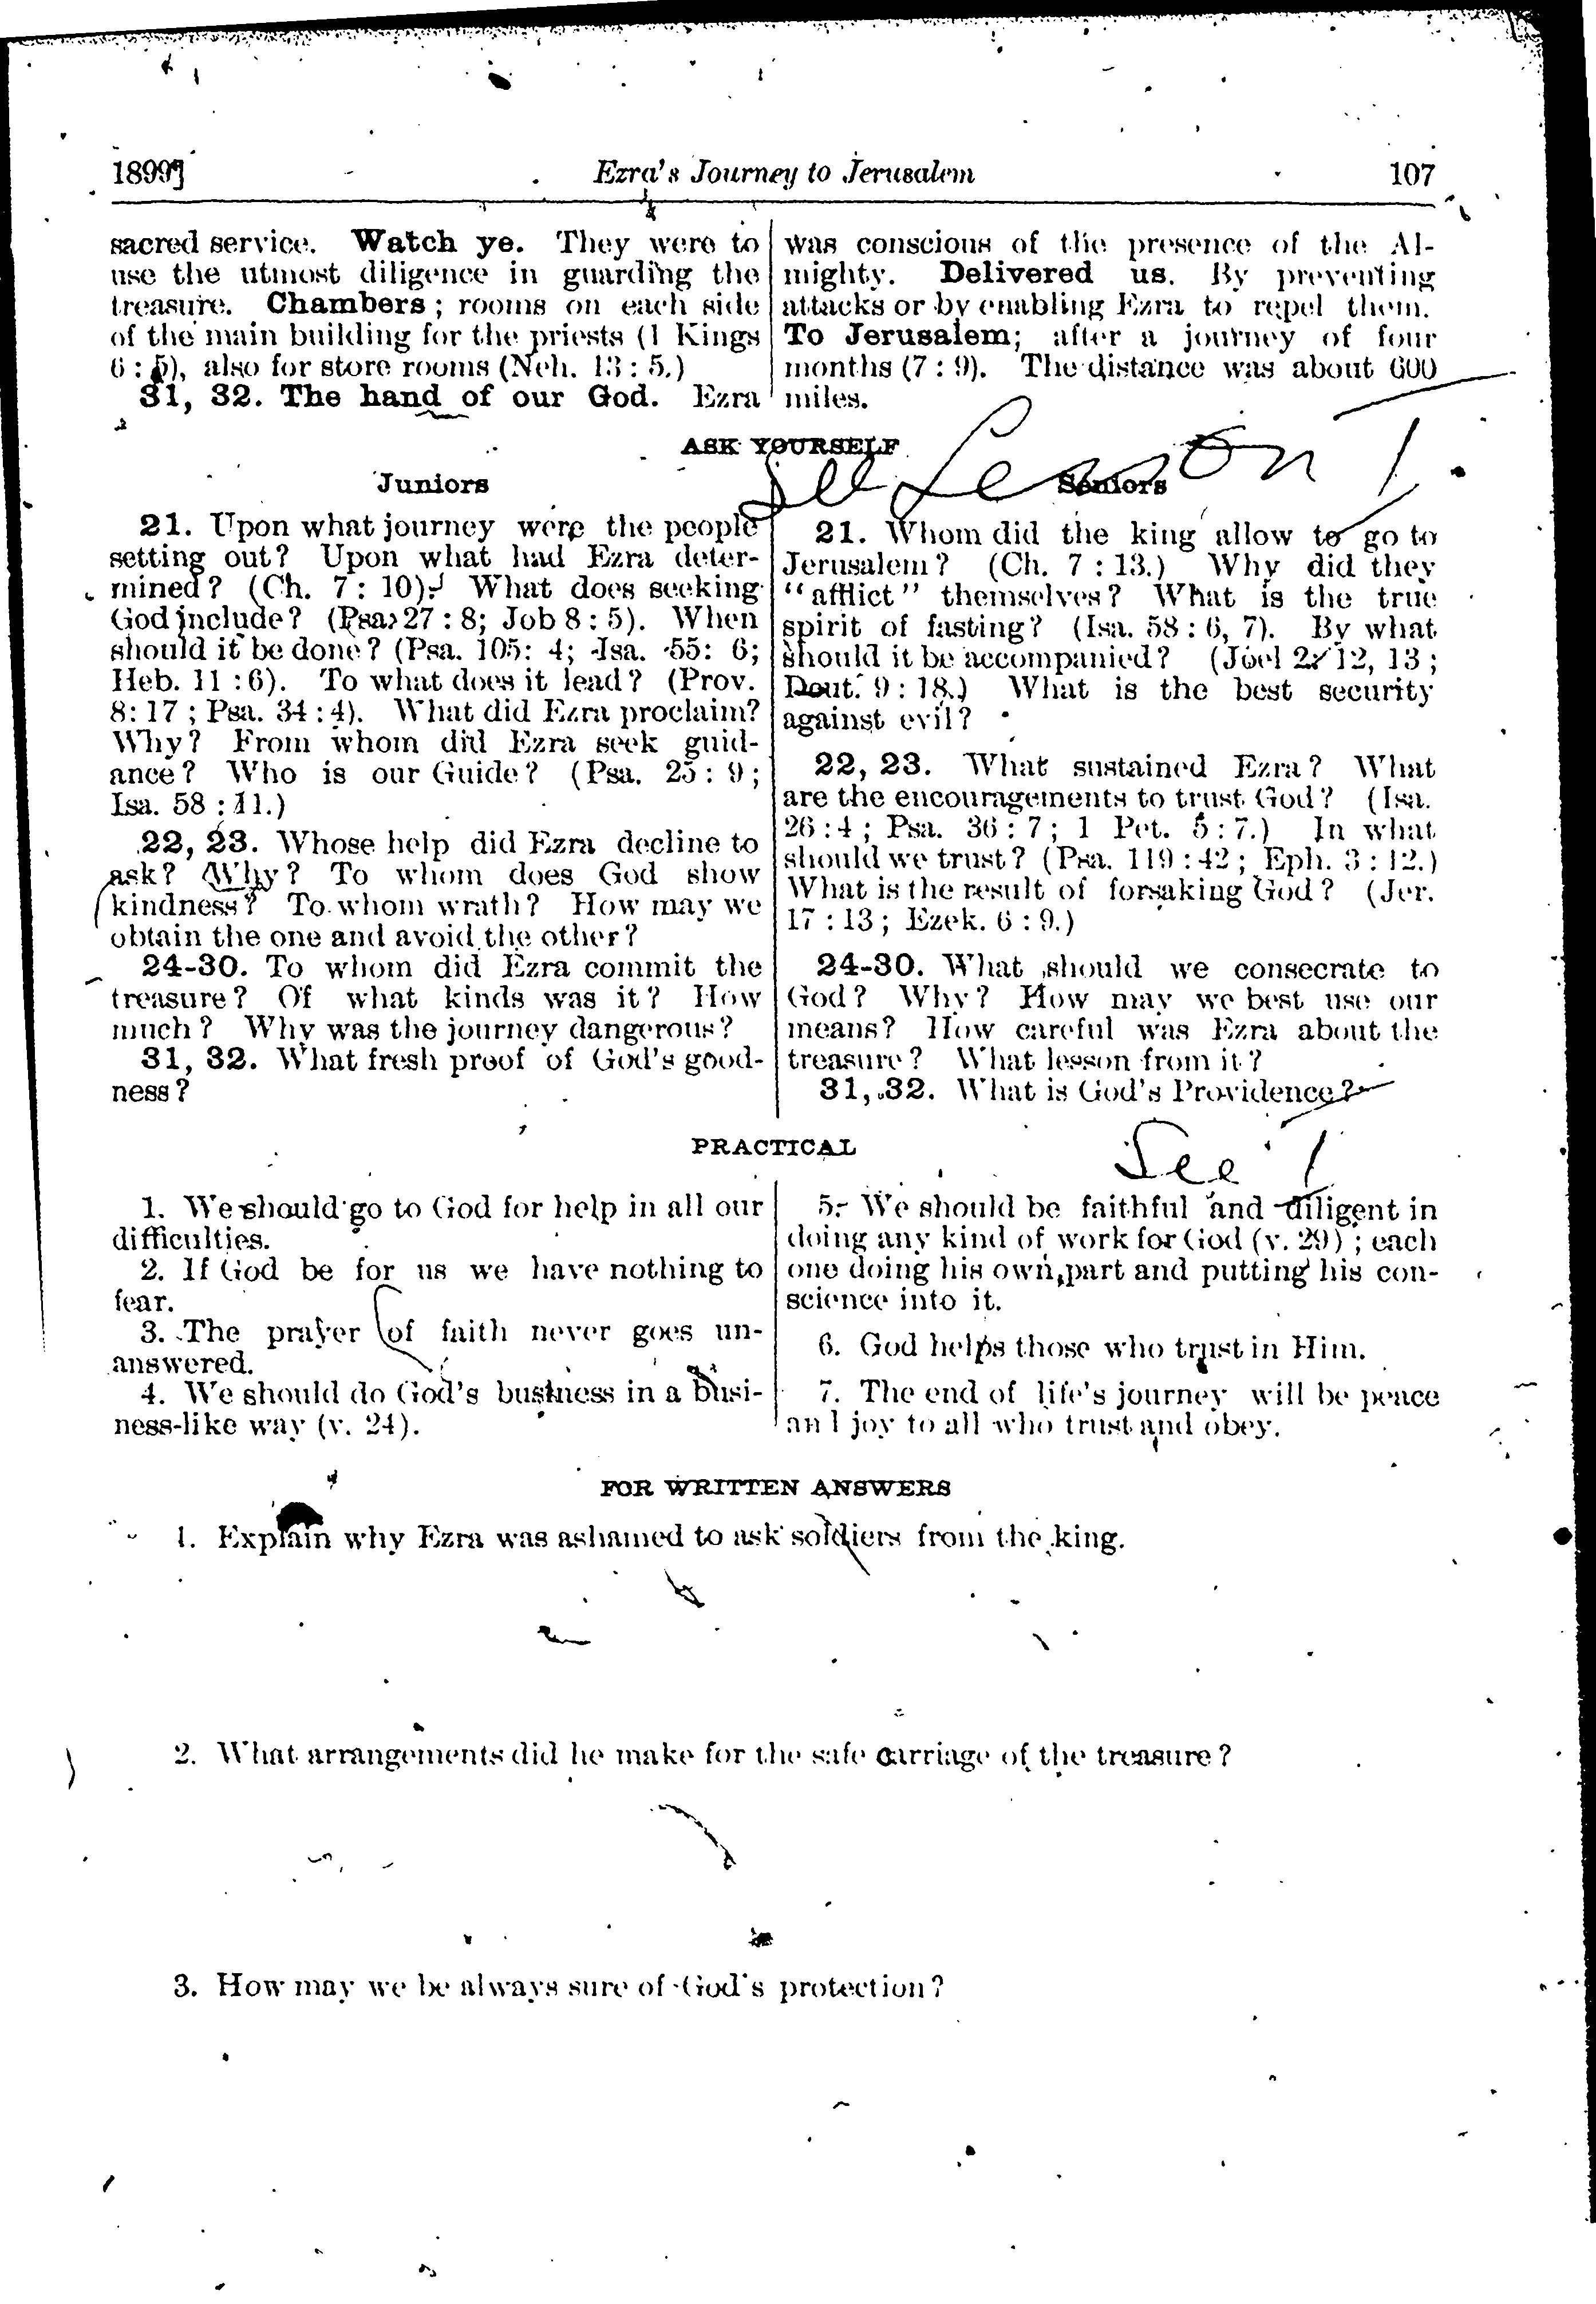 1899] Ezra's Journey to Jerusalem 107
sacred service. Watch ye. They were to
use the utmost diligence in guarding the
treasure. Chambers; rooms on each side
of the main building for the priests (1 Kings
6:5), also for store rooms (Neh. 13:5.)
31, 32. The hand of our God. Ezra
was conscious of the presence of the Al-
mighty. Delivered us. By preventing
attacks or by enabling Ezra to repel them.
To Jerusalem; after a journey of four
months (7:9). The distance was about 600
miles.
ASK YOURSELF
See Lesson I.
Juniors
21. Upon what journey were the people
setting out? Upon what had Ezra deter-
mined? (Ch. 7:10). What does seeking
God include? (Psa. 27:8; Job 8:5). When
should it be done? (Psa. 105:4; Isa. 55:6;
Heb. 11:6). To what does it lead? (Prov.
8:17; Psa. 34:4). What did Ezra proclaim?
Why? From whom did Ezra seek guid-
ance? Who is our Guide? (Psa. 25:9;
Isa. 58:11.)
22, 23. Whose help did Ezra decline to
ask? Why? To whom does God show
kindness? To whom wrath? How may we
obtain the one and avoid the other?
24-30. To whom did Ezra commit the
treasure? Of what kinds was it? How
much? Why was the journey dangerous?
31, 32. What fresh proof of God's good-
ness?
Seniors
21. Whom did the king allow to go to
Jerusalem? (Ch. 7:13.) Why did they
"afflict" themselves? What is the true
spirit of fasting? (Isa. 58:6, 7). By what
should it be accompanied? (Joel 2:12, 13;
Deut. 9:18.) What is the best security
against evil?
22, 23. What sustained Ezra? What
are the encouragements to trust God? (Isa.
26:4; Psa. 36:7; 1 Pet. 5:7.) In what
should we trust? (Psa. 119:42; Eph. 3:12.)
What is the result of forsaking God? (Jer.
17:13; Ezek. 6:9.)
24-30. What should we consecrate to
God? Why? How may we best use our
means? How careful was Ezra about the
treasure? What lesson from it?
31, 32. What is God's Providence?
PRACTICAL
See I
1. We should go to God for help in all our
difficulties.
2. If God be for us we have nothing to
fear.
3. The prayer of faith never goes un-
answered.
4. We should do God's business in a busi-
ness-like way (v. 24).
5. We should be faithful and diligent in
doing any kind of work for God (v. 29); each
one doing his own part and putting his con-
science into it.
6. God helps those who trust in Him.
7. The end of life's journey will be peace
and joy to all who trust and obey.
FOR WRITTEN ANSWERS
1. Explain why Ezra was ashamed to ask soldiers from the king.
2. What arrangements did he make for the safe carriage of the treasure?
3. How may we be always sure of God's protection?